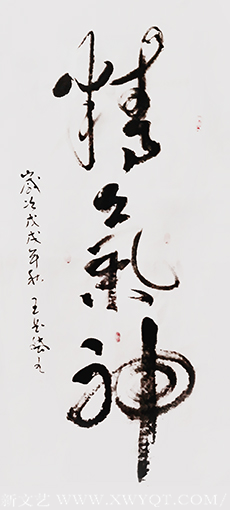 精氣神
歲次戊戌年秋
文艺 WWW.XWYQT.COM/